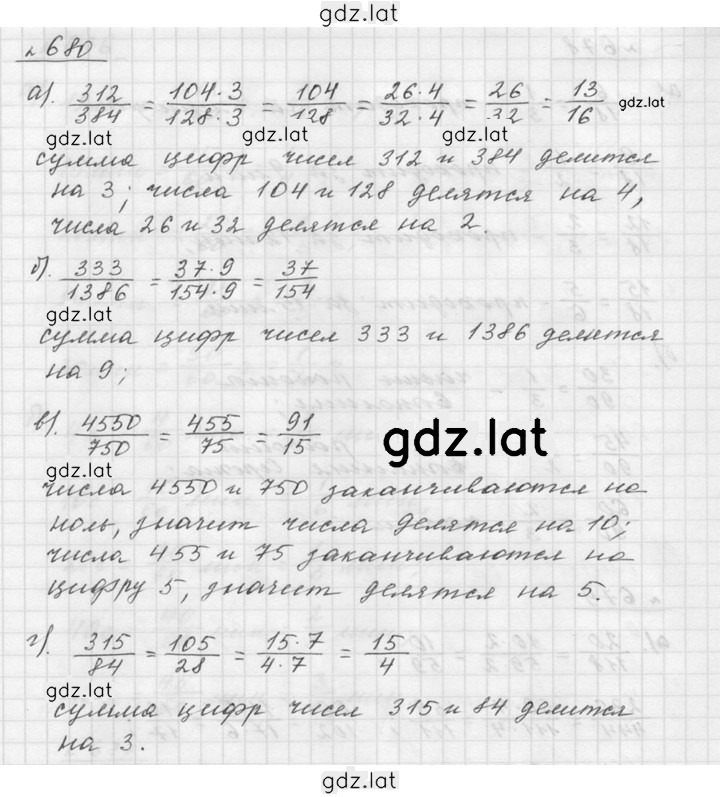 gdz.lat
№680
а). 312/384 = 104·3/128·3 = 104/128 = 26·4/32·4 = 26/32 = 13/16 gdz.lat
gdz.lat gdz.lat gdz.lat
сумма цифр чисел 312 и 384 делится
на 3; числа 104 и 128 делятся на 4,
числа 26 и 32 делятся на 2.
б). 333/1386 = 37·9/154·9 = 37/154
gdz.lat
сумма цифр чисел 333 и 1386 делится
на 9;
в). 4550/750 = 455/75 = 91/15
gdz.lat
gdz.lat
числа 4550 и 750 заканчиваются на
ноль, значит числа делятся на 10;
числа 455 и 75 заканчиваются на
цифру 5, значит делятся на 5.
г). 315/84 = 105/28 = 15·7/4·7 = 15/4
gdz.lat
сумма цифр чисел 315 и 84 делится
на 3.
gdz.lat